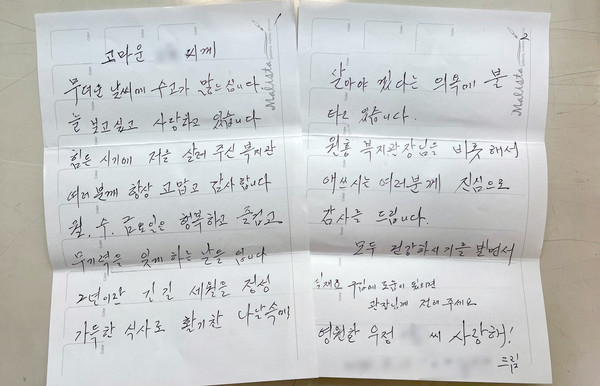 1
고마운 께
무더운 날씨에 수고가 많으십니다.
늘 보고싶고 사랑하고 있습니다
힘든 시기에 저를 살려 주신 복지관
여러분께 항상 고맙고 감사합니다
월, 수, 금요일은 행복하고 즐겁고
무기력을 잊게하는 날들 입니다
2년이란 긴긴 세월을 정성
가득한 식사로 활기찬 나날속에
Malista
2
살아야 겠다는 의욕에 불
타고 있습니다.
원흥 복지관장님을 비롯해서
애쓰시는 여러분께 진심으로
감사를 드립니다.
모두 건강하시기를 바면서
도움이 되시면
관장님께 전해 주세요
영원한 우정 씨 사랑해!
드림
Malista